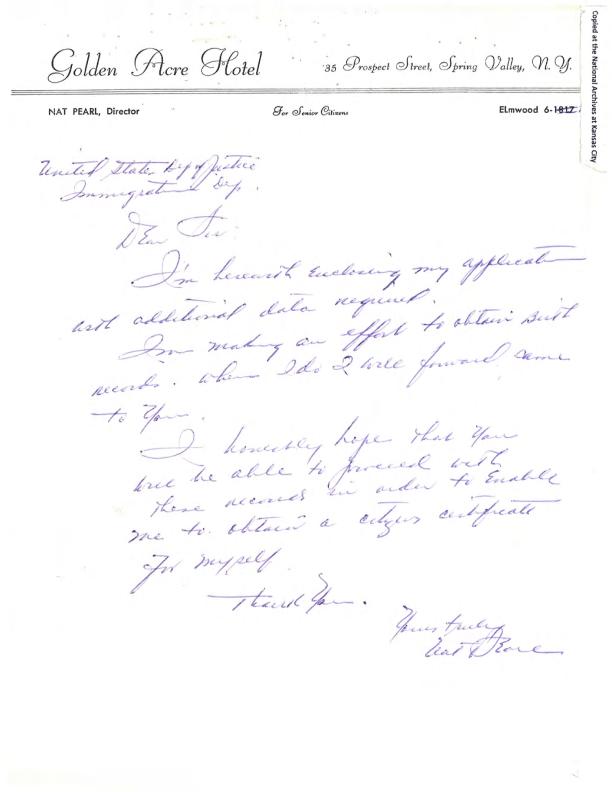 Golden Acre Hotel
35 Prospect Street, Spring Valley, N. Y.
NAT PEARL, Director
For Senior Citizens
ELmwood 6-1817
Copied at the National Archives at Kansas City
United State Dep of Justice
Immigration Dep.
Dear Sir:
I'm herewith enclosing my application
with additional data required.
I'm making an effort to obtain Birth
records. when I do I will forward same
to You.
I honestly hope that You
will be able to proceed with
these records in order to Enable
me to obtain a citizens certificate
for myself.
Thank You.
Yours truly
Nat Pearl